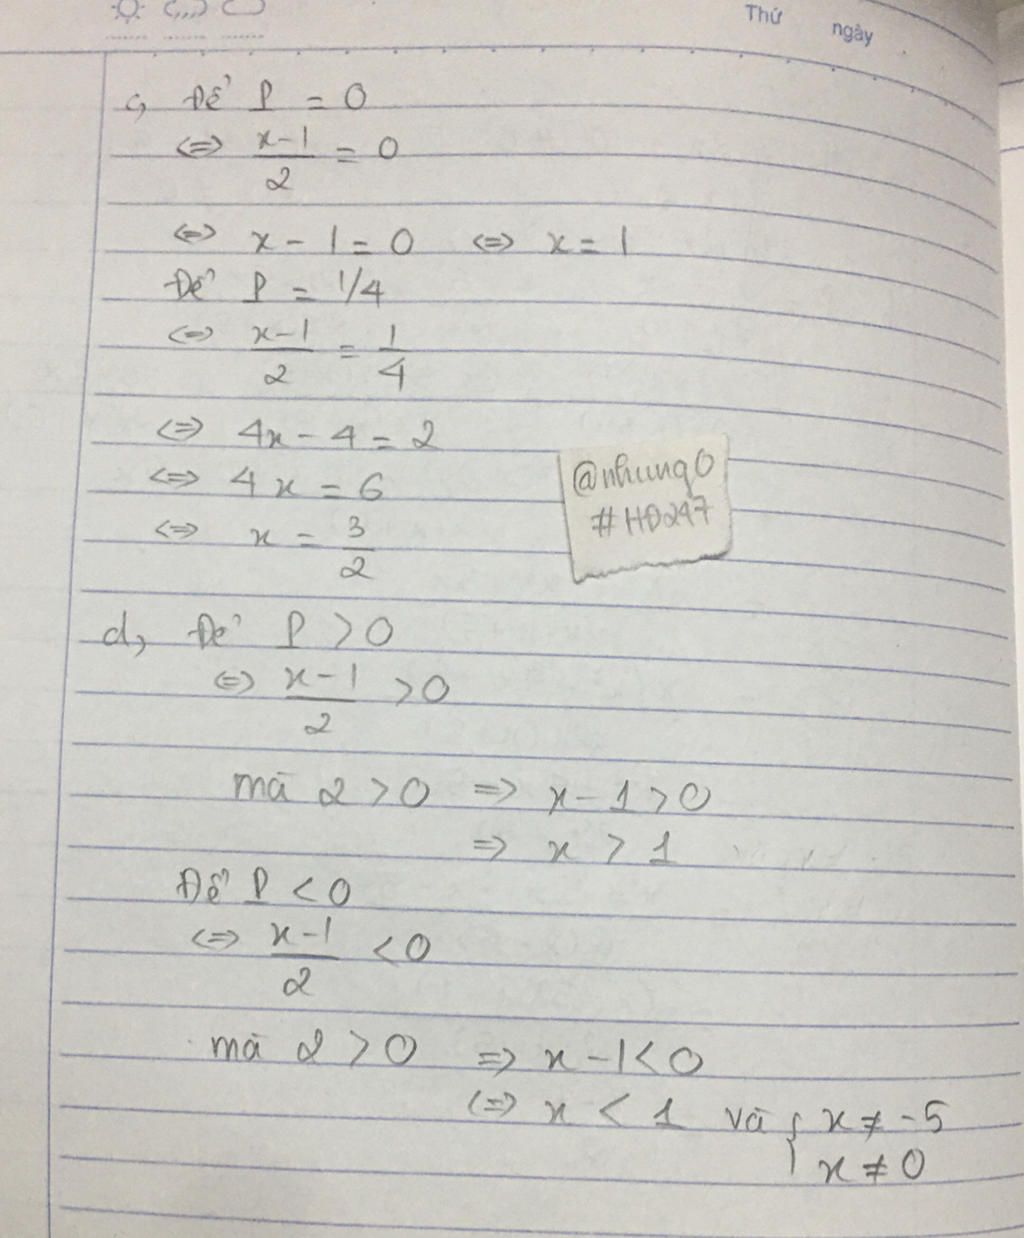 Thứ
ngày
c, Để P = 0
<=> x-1/2 = 0
<=> x - 1 = 0 <=> x = 1
Để P = 1/4
<=> x-1/2 = 1/4
<=> 4x - 4 = 2
<=> 4x = 6
<=> x = 3/2
@nhung0
#HĐ247
d, Để P > 0
<=> x-1/2 > 0
mà 2 > 0 => x - 1 > 0
=> x > 1
Để P < 0
<=> x-1/2 < 0
mà 2 > 0 => x - 1 < 0
<=> x < 1 và { x ≠ -5
x ≠ 0